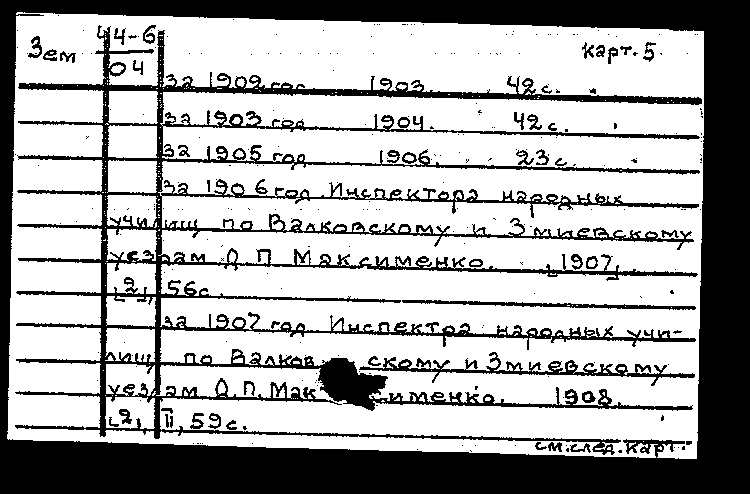 Зем 44-6 карт. 5.
04
за 1902 год 1903. 42 с.
за 1903 год 1904. 42 с.
за 1905 год 1906. 23 с.
за 1906 год Инспектора народных
училищ по Валковскому и Змиевскому
уездам О. П. Максименко. [1907],
[2], 56 с.
за 1907 год Инспектра народных учи-
лищ по Валковскому и Змиевскому
уездам О. П. Максименко. 1908.
[2], II, 59 с.
см. след. карт.